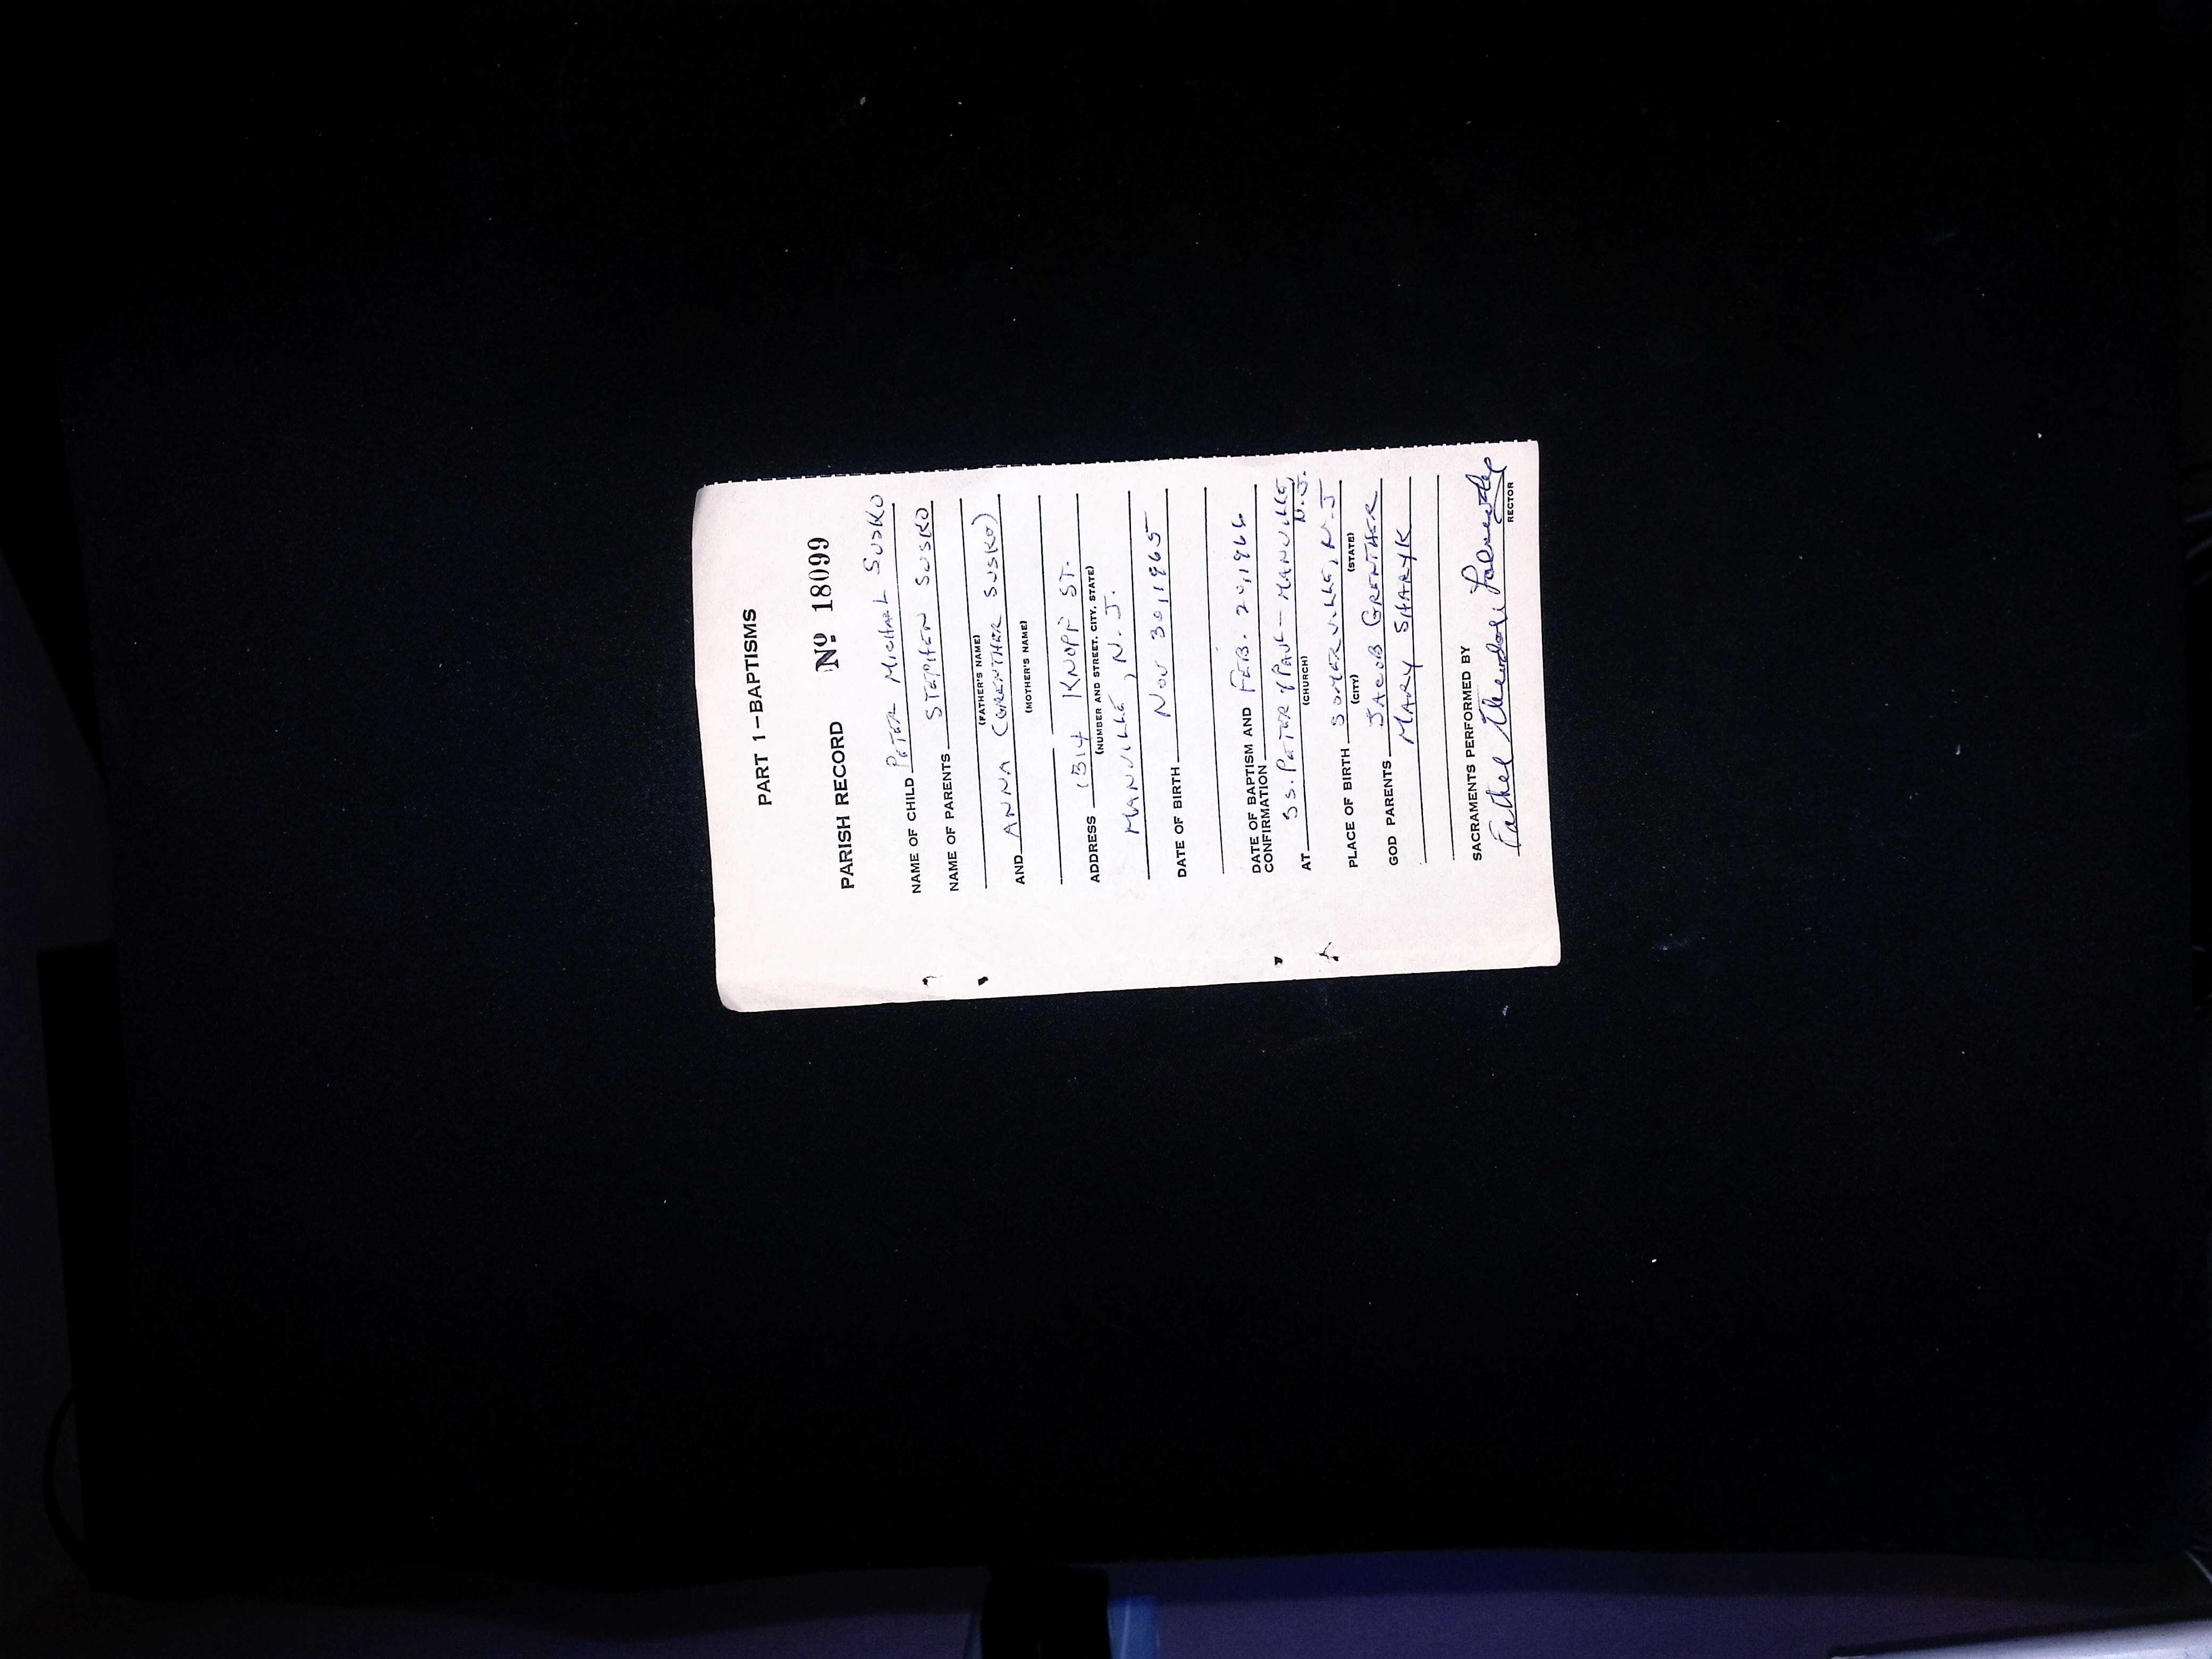 PART 1-BAPTISMS
PARISH RECORD Nº 18099
NAME OF CHILD PETER MICHAEL SUSKO
NAME OF PARENTS STEPHEN SUSKO
(FATHER'S NAME)
AND ANNA (GRENTHER SUSKO)
(MOTHER'S NAME)
ADDRESS 1314 KNOPF ST.
(NUMBER AND STREET, CITY, STATE)
MANVILLE, N.J.
DATE OF BIRTH NOV 30, 1965
DATE OF BAPTISM AND FEB. 20, 1966
CONFIRMATION
AT SS. PETER & PAUL - MANVILLE,
(CHURCH) N.J.
PLACE OF BIRTH SOMERVILLE, N.J
(CITY) (STATE)
GOD PARENTS JACOB GRENTHER
MARY SHARYK
SACRAMENTS PERFORMED BY
Father
RECTOR